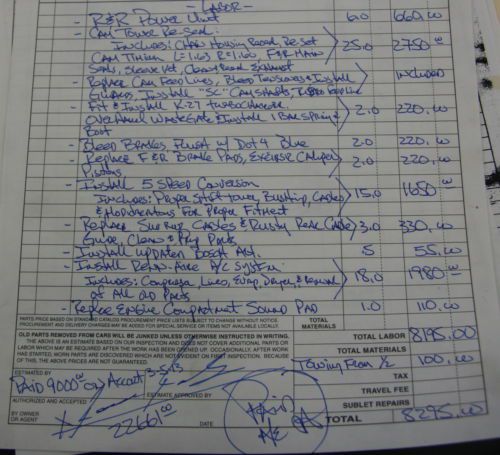 -LABOR-
- R&R Power Unit 6.0 660.00
- Cam Tower Re-Seal
Includes: Chain Housing Reseal, Re-set 25.0 2750.00
Cam Timing For Main
Seals, Sleeve Clean & Exhaust
- Replace Cam Feed Lines, Bleed Tensioners & Install Included
Guides, Install "SC" Camshafts,
- Fit & Install K-27 Turbocharger 2.0 220.00
Overhaul Wastegate & Install 1 Bar Spring &
Boot
- Bleed Brakes, Flush w/ Dot 4 Blue 2.0 220.00
- Replace F&R Brake Pads, Exercise Caliper 2.0 220.00
Pistons
- Install 5 Speed Conversion
Includes: Proper Shift Tower, Bushing, Cables 15.0 1650.00
& Modifications For Proper Fitment
- Replace Sunroof Cables & Rusty Rear Cable 3.0 330.00
Guide, Clean & Prep Parts
- Install Updated Bosch Alt. .5 55.00
- Install A/C System
Includes: Compressor, Lines, Evap, Dryer, & Removal 18.0 1980.00
of All Old Parts
- Replace Engine Compartment Sound Pad 1.0 110.00
PARTS PRICE BASED ON STANDARD CATALOG PROCUREMENT PRICE LISTS SUBJECT TO CHANGE WITHOUT NOTICE.
PROCUREMENT AND DELIVERY CHARGES MAY BE ADDED FOR SPECIAL SERVICE OR ITEMS NOT AVAILABLE LOCALLY.
TOTAL MATERIALS
OLD PARTS REMOVED FROM CARS WILL BE JUNKED UNLESS OTHERWISE INSTRUCTED IN WRITING.
THE ABOVE IS AN ESTIMATE BASED ON OUR INSPECTION AND DOES NOT COVER ADDITIONAL PARTS OR
LABOR WHICH MAY BE REQUIRED AFTER THE WORK HAS BEEN OPENED UP. OCCASIONALLY, AFTER WORK
HAS STARTED, WORN PARTS ARE DISCOVERED WHICH ARE NOT EVIDENT ON FIRST INSPECTION. BECAUSE
OF THIS, THE ABOVE PRICES ARE NOT GUARANTEED.
TOTAL LABOR 8195.00
TOTAL MATERIALS
Towing From 100.00
TAX
TRAVEL FEE
SUBLET REPAIRS
TOTAL 8295.00
ESTIMATED BY
Paid 9000 on Account 3-5-13
AUTHORIZED AND ACCEPTED
ESTIMATE APPROVED BY
BY OWNER
OR AGENT
22661.00
Paid